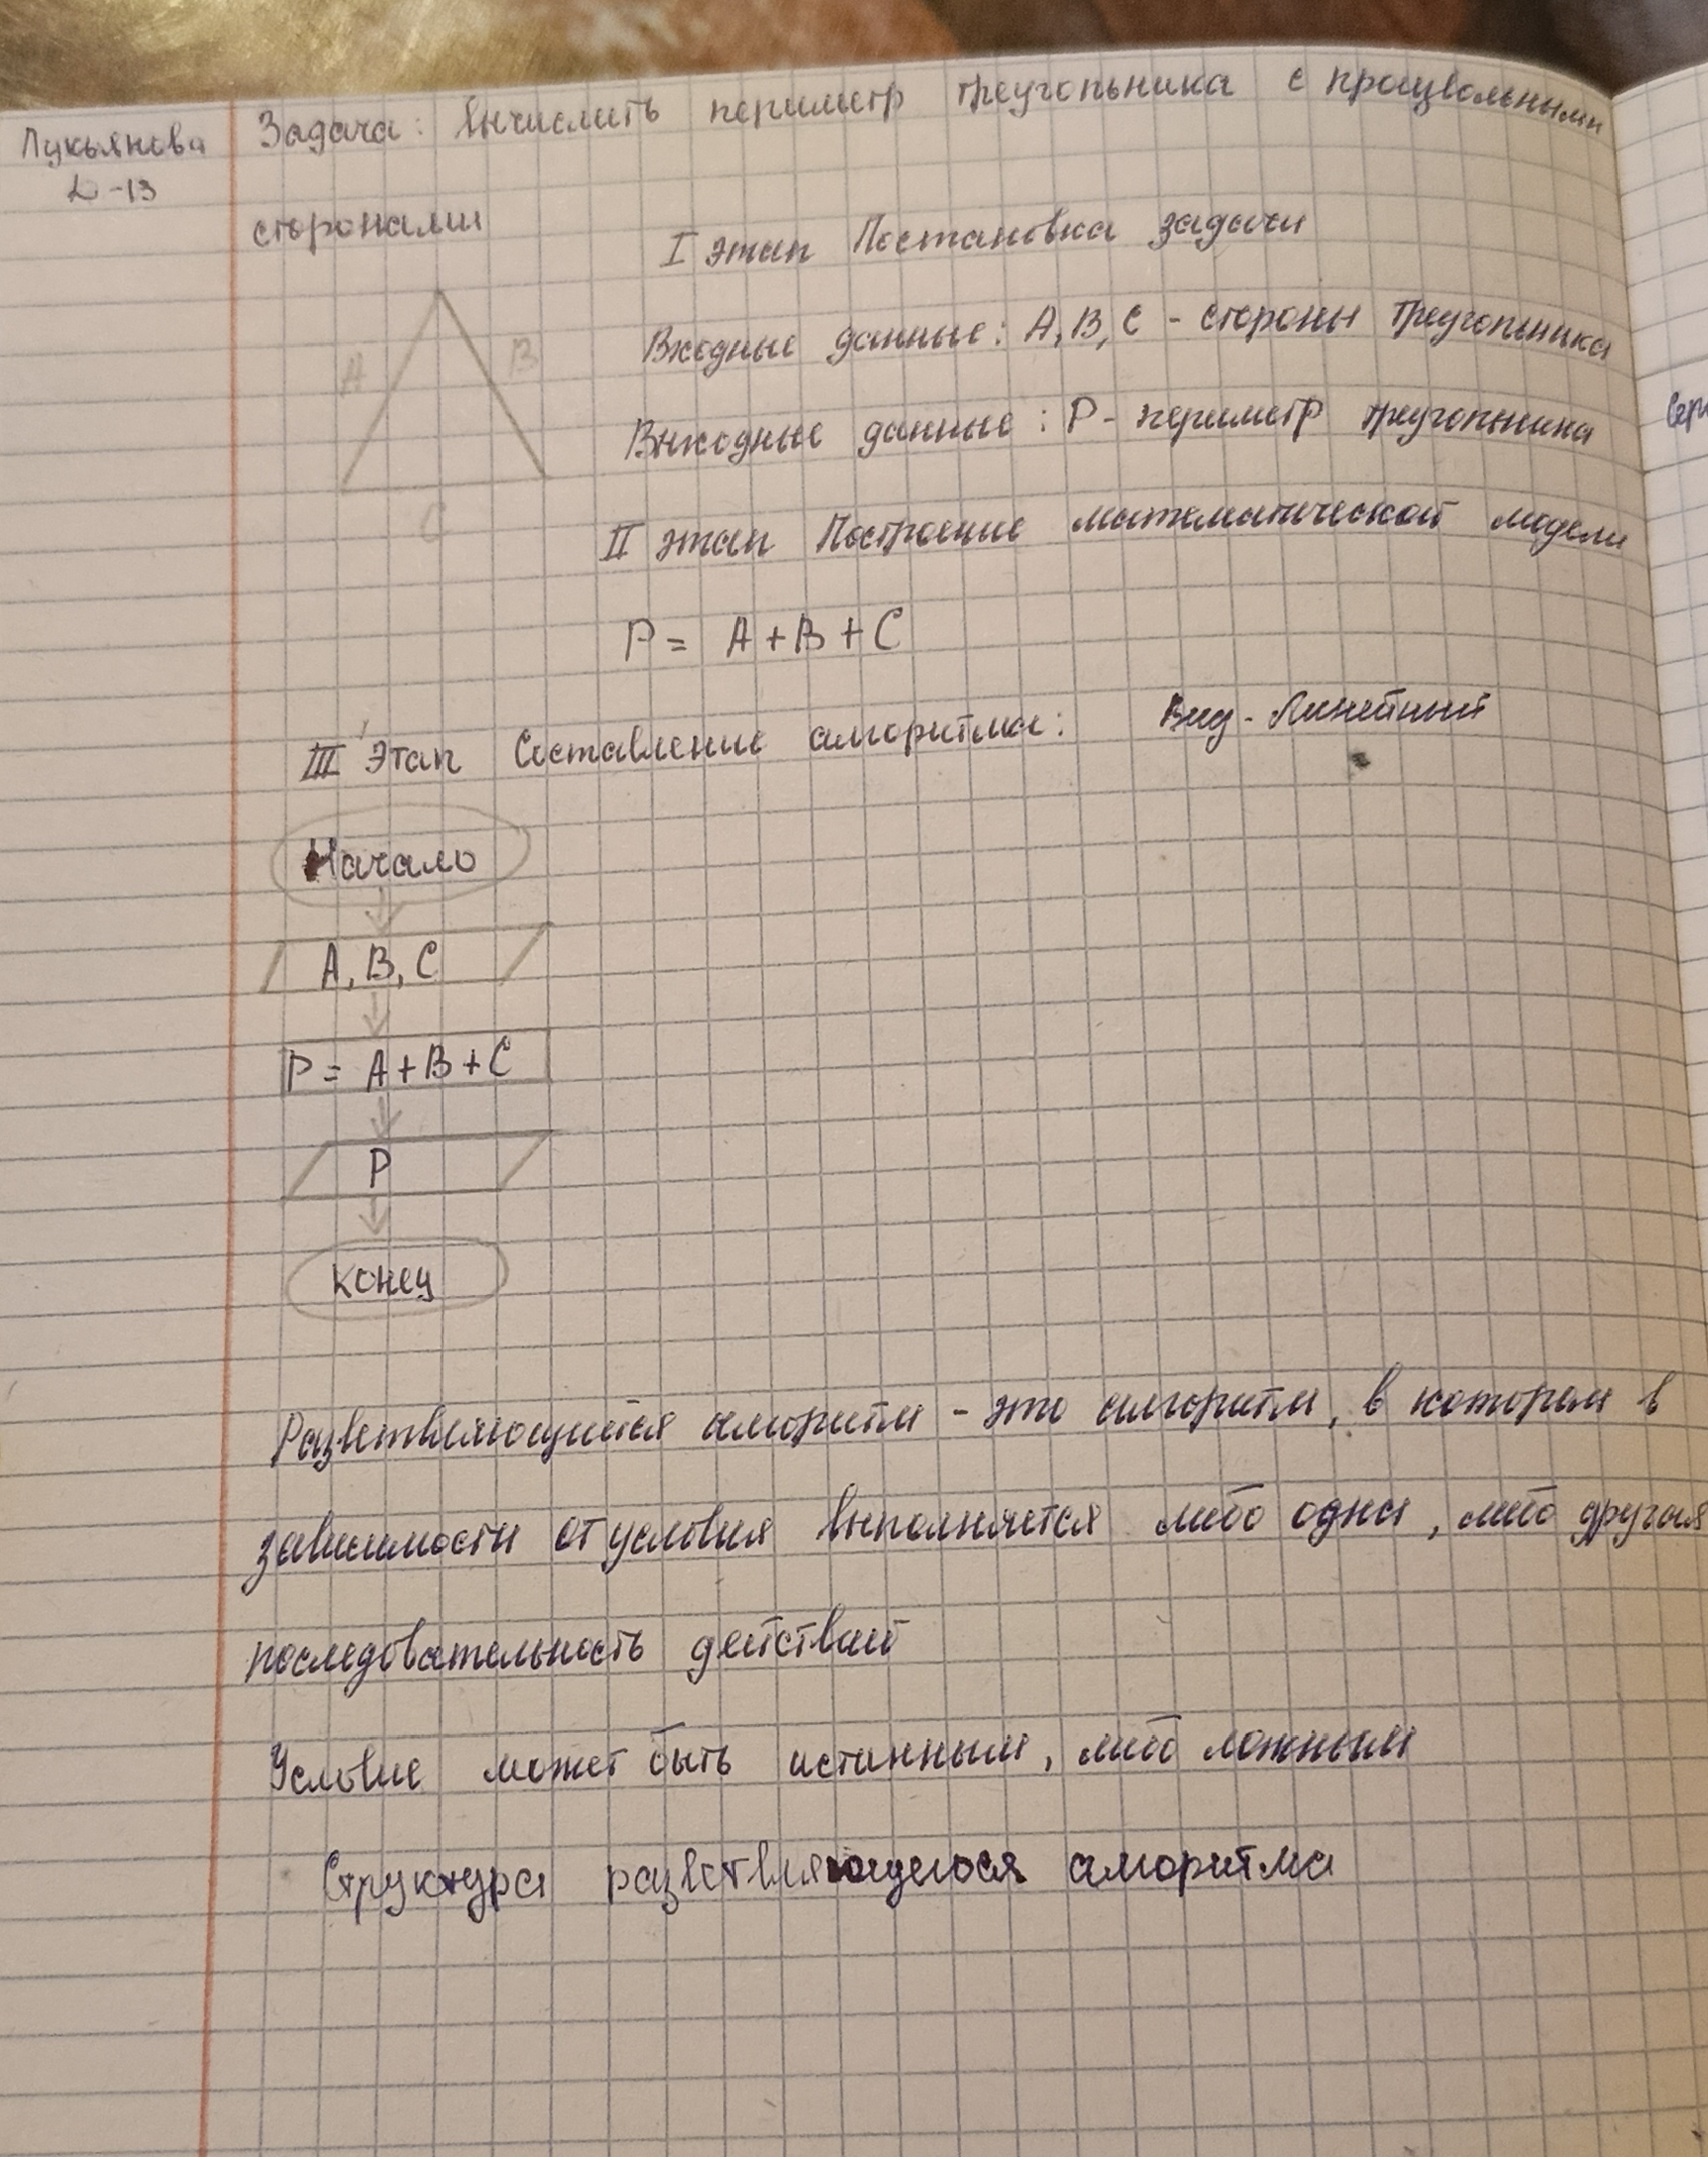 Лукьянова
Д-13
Задача: Вычислить периметр треугольника с произвольными
сторонами
I этап Постановка задачи
A
B
C
Входные данные: A, B, C - стороны треугольника
Выходные данные: P - периметр треугольника
II этап Построение математической модели
P = A + B + C
III Этап Составление алгоритма: Вид - Линейный
Начало
A, B, C
P = A + B + C
P
Конец
Разветвляющийся алгоритм - это алгоритм, в котором в
зависимости от условия выполняется либо одна, либо другая
последовательность действий
Условие может быть истинным, либо ложным
Структура разветвляющегося алгоритма